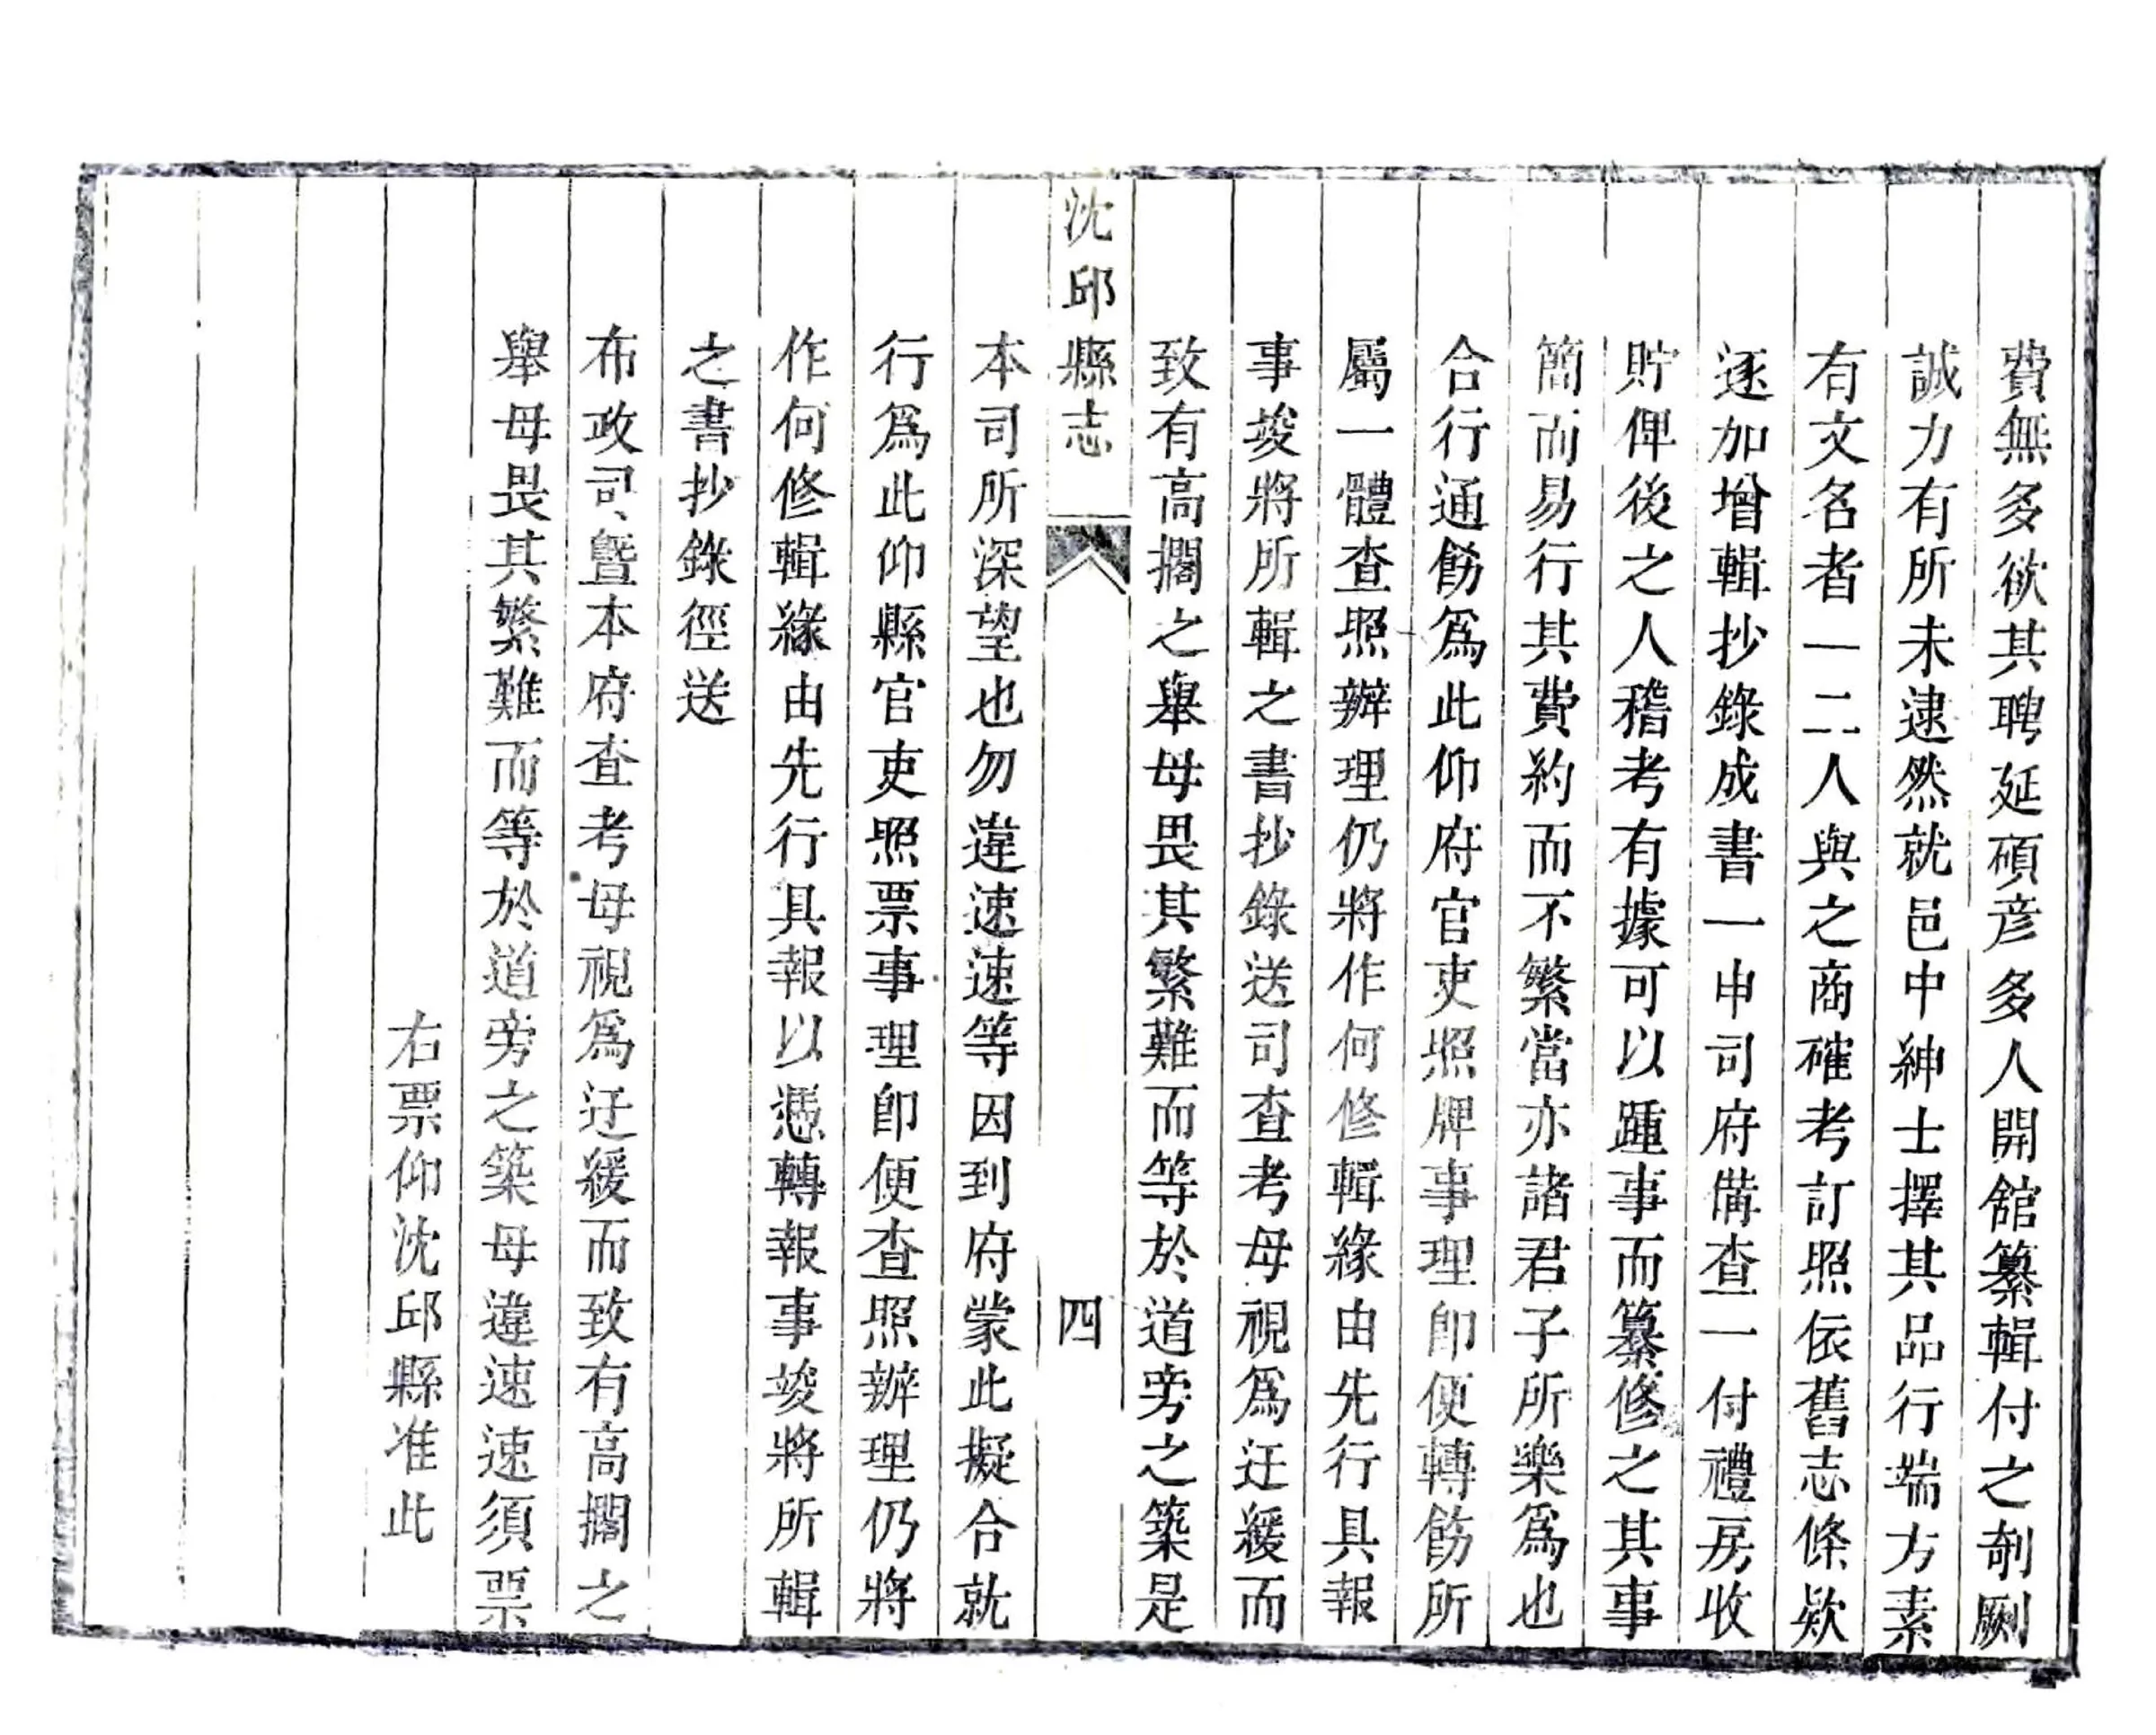 費無多欲其聘延碩彦多人開舘纂輯付之剞劂
誠力有所未逮然就邑中紳士擇其品行端方素
有文名者一二人與之商確考訂照依舊志條欵
逐加增輯抄錄成書一申司府備查一付禮房收
貯俾後之人稽考有據可以踵事而纂修之其事
簡而易行其費約而不繁當亦諸君子所樂爲也
合行通飭爲此仰府官吏照牌事理卽便轉飭所
屬一體查照辦理仍將作何修輯緣由先行具報
事竣將所輯之書抄錄送司查考毋視爲迂緩而
致有高擱之舉毋畏其繁難而等於道旁之築是
沈邱縣志
四
本司所深望也勿違速速等因到府蒙此擬合就
行爲此仰縣官吏照票事理卽便查照辦理仍將
作何修輯緣由先行具報以憑轉報事竣將所輯
之書抄錄徑送
布政司暨本府查考毋視爲迂緩而致有高擱之
舉毋畏其繁難而等於道旁之築毋違速速須票
右票仰沈邱縣准此